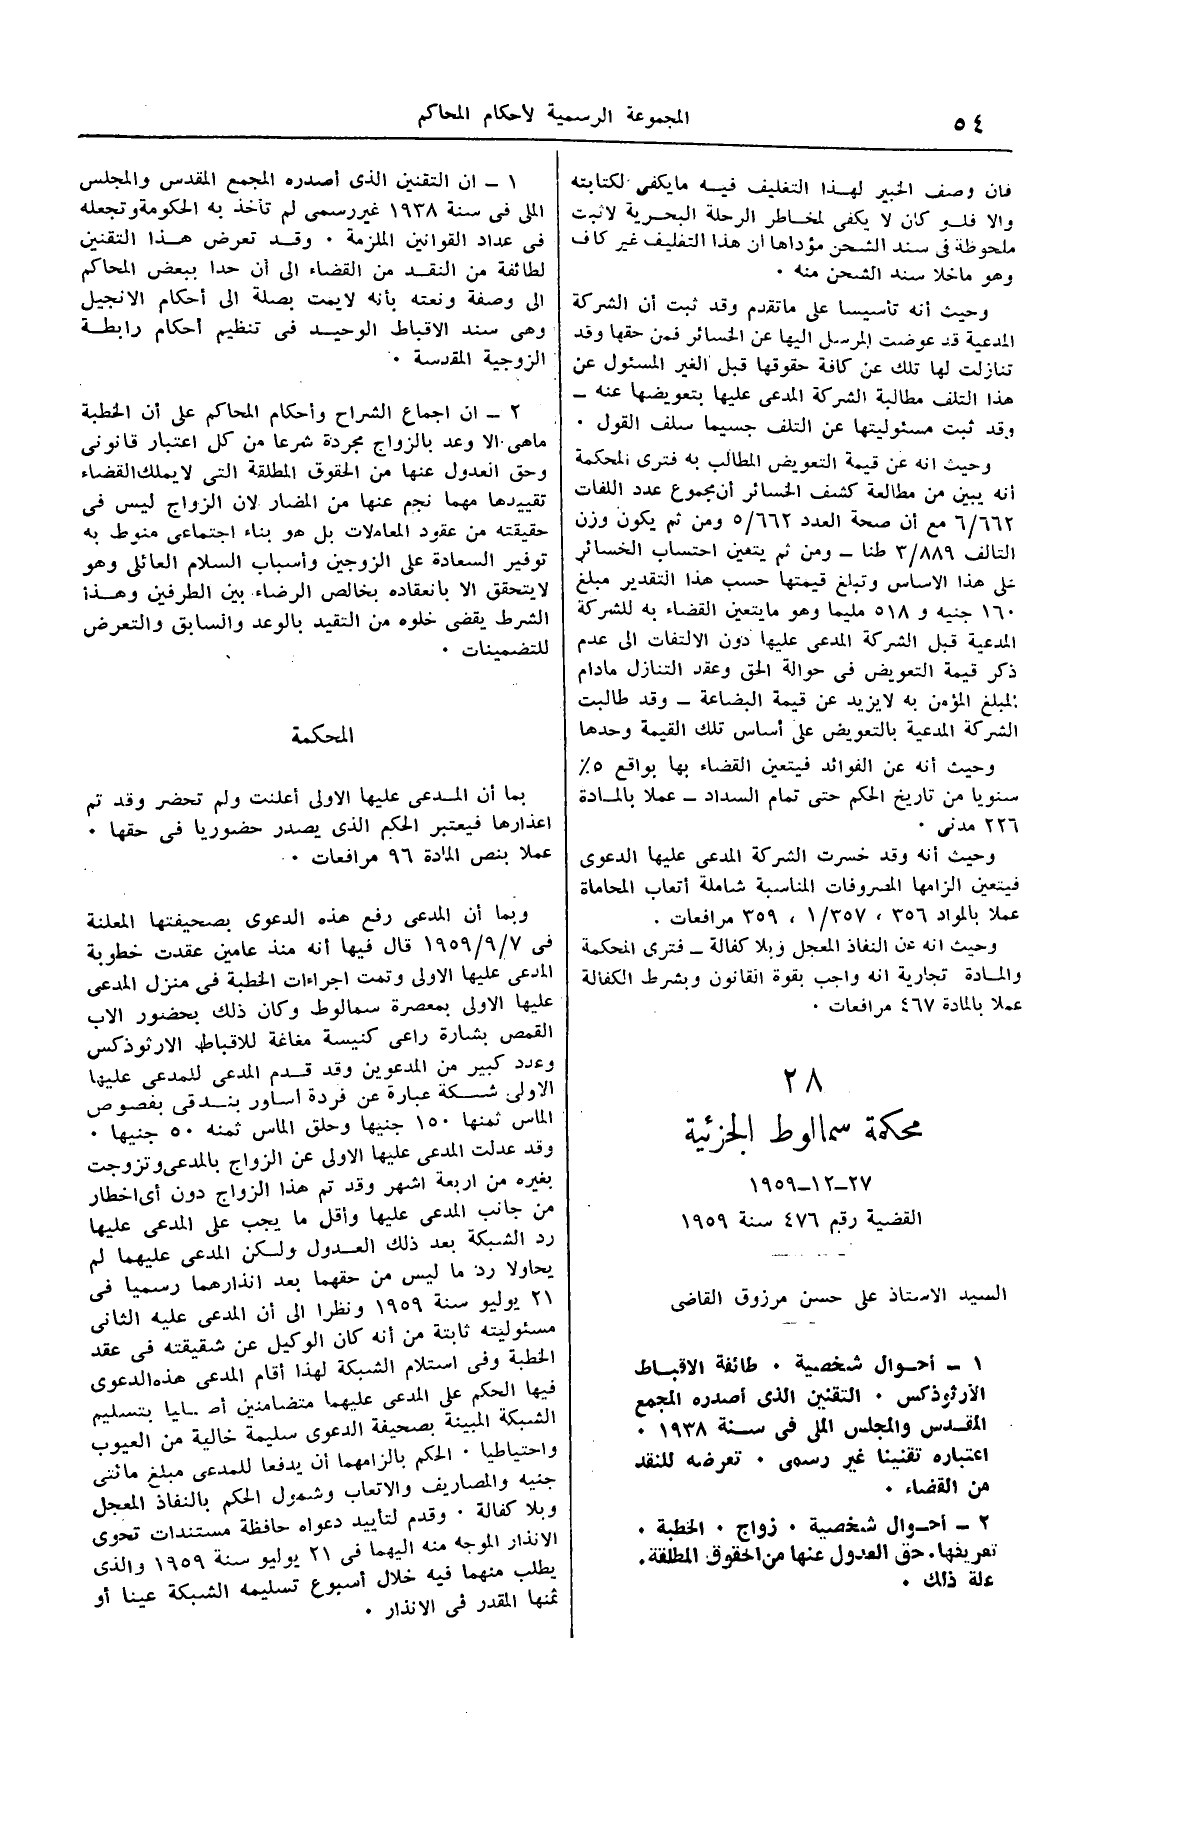 ٥٤
المجموعة الرسمية لأحكام المحاكم
فان وصف الخبير لهذا التغليف فيه مايكفى لكتابته
والا فلو كان لا يكفى لمخاطر الرحلة البحرية لاثبت
ملحوظة فى سند الشحن مؤداها ان هذا التغليف غير كاف
وهو ماخلا سند الشحن منه ٠
وحيث أنه تأسيسا على ماتقدم وقد ثبت أن الشركة
المدعية قد عوضت المرسل اليها عن الخسائر فمن حقها وقد
تنازلت لها تلك عن كافة حقوقها قبل الغير المسئول عن
هذا التلف مطالبة الشركة المدعى عليها بتعويضها عنه ــ
وقد ثبت مسئوليتها عن التلف جسيما سلف القول ٠
وحيث انه عن قيمة التعويض المطالب به فترى المحكمة
أنه يبين من مطالعة كشف الخسائر أن مجموع عدد اللفات
٦/٦٦٢ مع أن صحة العدد ٥/٦٦٢ ومن ثم يكون وزن
التالف ٣/٨٨٩ طنا ــ ومن ثم يتعين احتساب الخسائر
على هذا الاساس وتبلغ قيمتها حسب هذا التقدير مبلغ
١٦٠ جنيه و ٥١٨ مليما وهو مايتعين القضاء به للشركة
المدعية قبل الشركة المدعى عليها دون الالتفات الى عدم
ذكر قيمة التعويض فى حوالة الحق وعقد التنازل مادام
المبلغ المؤمن به لايزيد عن قيمة البضاعة ــ وقد طالبت
الشركة المدعية بالتعويض على أساس تلك القيمة وحدها
وحيث أنه عن الفوائد فيتعين القضاء بها بواقع ٥٪
سنويا من تاريخ الحكم حتى تمام السداد ــ عملا بالمادة
٢٢٦ مدنى ٠
وحيث أنه وقد خسرت الشركة المدعى عليها الدعوى
فيتعين الزامها المصروفات المناسبة شاملة أتعاب المحاماة
عملا بالمواد ٣٥٦ ، ١/٣٥٧ ، ٣٥٩ مرافعات .
وحيث انه عن النفاذ المعجل وبلا كفالة ــ فترى المحكمة
والمادة تجارية انه واجب بقوة القانون وبشرط الكفالة
عملا بالمادة ٤٦٧ مرافعات ٠
٢٨
محكمة سمالوط الجزئية
٢٧ــ١٢ــ١٩٥٩
القضية رقم ٤٧٦ سنة ١٩٥٩
السيد الاستاذ على حسن مرزوق القاضى
١ ــ أحوال شخصية ٠ طائفة الاقباط
الأرثوذكس ٠ التقنين الذى أصدره المجمع
المقدس والمجلس الملى فى سنة ١٩٣٨ ٠
اعتباره تقنينا غير رسمى ٠ تعرضه للنقد
من القضاء ٠
٢ ــ أحوال شخصية ٠ زواج ٠ الخطبة ٠
تعريفها. حق العدول عنها من الحقوق المطلقة.
علة ذلك ٠
١ ــ ان التقنين الذى أصدره المجمع المقدس والمجلس
الملى فى سنة ١٩٣٨ غير رسمى لم تأخذ به الحكومة وتجعله
فى عداد القوانين الملزمة ٠ وقد تعرض هذا التقنين
لطائفة من النقد من القضاء الى أن حدا ببعض المحاكم
الى وصفة ونعته بأنه لايمت بصلة الى أحكام الانجيل
وهى سند الاقباط الوحيد فى تنظيم أحكام رابطة
الزوجية المقدسة ٠
٢ ــ ان اجماع الشراح وأحكام المحاكم على أن الخطبة
ماهى الا وعد بالزواج مجردة شرعا من كل اعتبار قانونى
وحق العدول عنها من الحقوق المطلقة التى لايملك القضاء
تقييدها مهما نجم عنها من المضار لان الزواج ليس فى
حقيقته من عقود المعاملات بل هو بناء اجتماعى منوط به
توفير السعادة على الزوجين وأسباب السلام العائلى وهو
لايتحقق الا بانعقاده بخالص الرضاء بين الطرفين وهذا
الشرط يقضى خلوه من التقيد بالوعد والسابق والتعرض
للتضمينات ٠
المحكمة
بما أن المدعى عليها الاولى أعلنت ولم تحضر وقد تم
اعذارها فيعتبر الحكم الذى يصدر حضوريا فى حقها ٠
عملا بنص المادة ٩٦ مرافعات ٠
وبما أن المدعى رفع هذه الدعوى بصحيفتها المعلنة
فى ١٩٥٩/٩/٧ قال فيها أنه منذ عامين عقدت خطوبة
المدعى عليها الاولى وتمت اجراءات الخطبة فى منزل المدعى
عليها الاولى بمعصرة سمالوط وكان ذلك بحضور الاب
القمص بشارة راعى كنيسة مغاغة للاقباط الارثوذكس
وعدد كبير من المدعوين وقد قدم المدعى للمدعى عليها
الاولى شبكة عبارة عن فردة اساور بندقى بفصوص
الماس ثمنها ١٥٠ جنيها وحلق الماس ثمنه ٥٠ جنيها ٠
وقد عدلت المدعى عليها الاولى عن الزواج بالمدعى وتزوجت
بغيره من اربعة اشهر وقد تم هذا الزواج دون أى اخطار
من جانب المدعى عليها وأقل ما يجب على المدعى عليها
رد الشبكة بعد ذلك العدول ولكن المدعى عليهما لم
يحاولا رد ما ليس من حقهما بعد انذارهما رسميا فى
٢١ يوليو سنة ١٩٥٩ ونظرا الى أن المدعى عليه الثانى
مسئوليته ثابتة من أنه كان الوكيل عن شقيقته فى عقد
الخطبة وفى استلام الشبكة لهذا أقام المدعى هذه الدعوى
فيها الحكم على المدعى عليهما متضامنين أصليا بتسليم
الشبكة المبينة بصحيفة الدعوى سليمة خالية من العيوب
واحتياطيا ٠ الحكم بالزامهما أن يدفعا للمدعى مبلغ مائتى
جنيه والمصاريف والاتعاب وشمول الحكم بالنفاذ المعجل
وبلا كفالة ٠ وقدم لتأييد دعواه حافظة مستندات تحوى
الانذار الموجه منه اليهما فى ٢١ يوليو سنة ١٩٥٩ والذى
يطلب منهما فيه خلال أسبوع تسليمه الشبكة عينا أو
ثمنها المقدر فى الانذار ٠